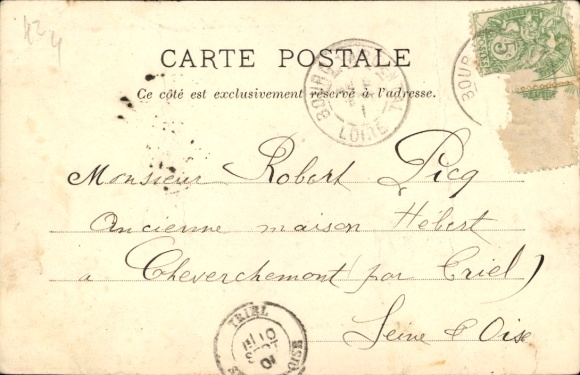 424
CARTE POSTALE
Ce côté est exclusivement réservé à l'adresse.
LOIRE
5
Monsieur Robert Picq
Ancienne maison Hébert
a Cheverchemont (par Triel)
Seine & Oise
TRIEL
10
SEPT
01